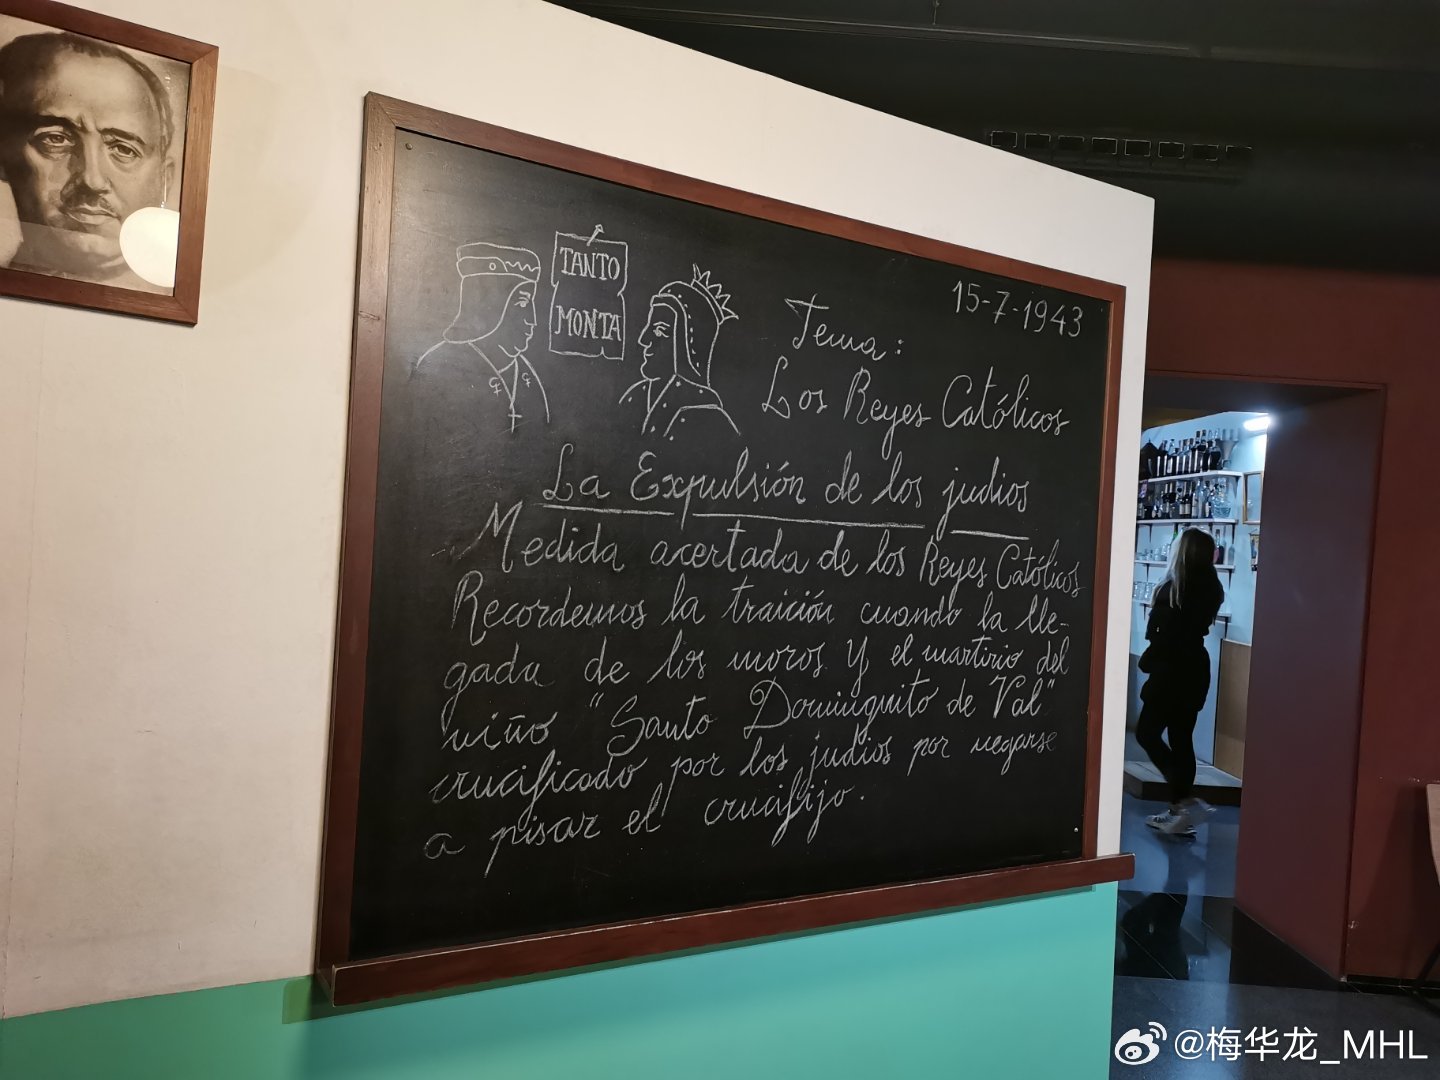 TANTO
MONTA
15-7-1943
Tema:
Los Reyes Católicos
La Expulsión de los judios
Medida acertada de los Reyes Católicos
Recordemos la traición cuando la lle-
gada de los moros y el martirio del
niño "Santo Dominguito de Val"
crucificado por los judios por negarse
a pisar el crucifijo.
@梅华龙_MHL